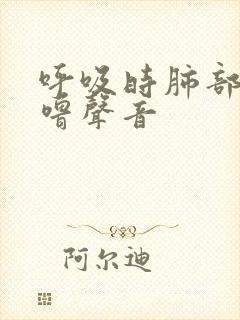 呼吸时肺部
啰聲音
阿尔迪